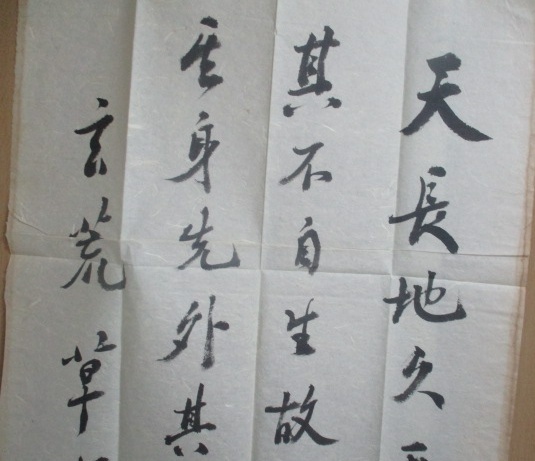 天長地久
其不自生故
其身先外其
玄荒草